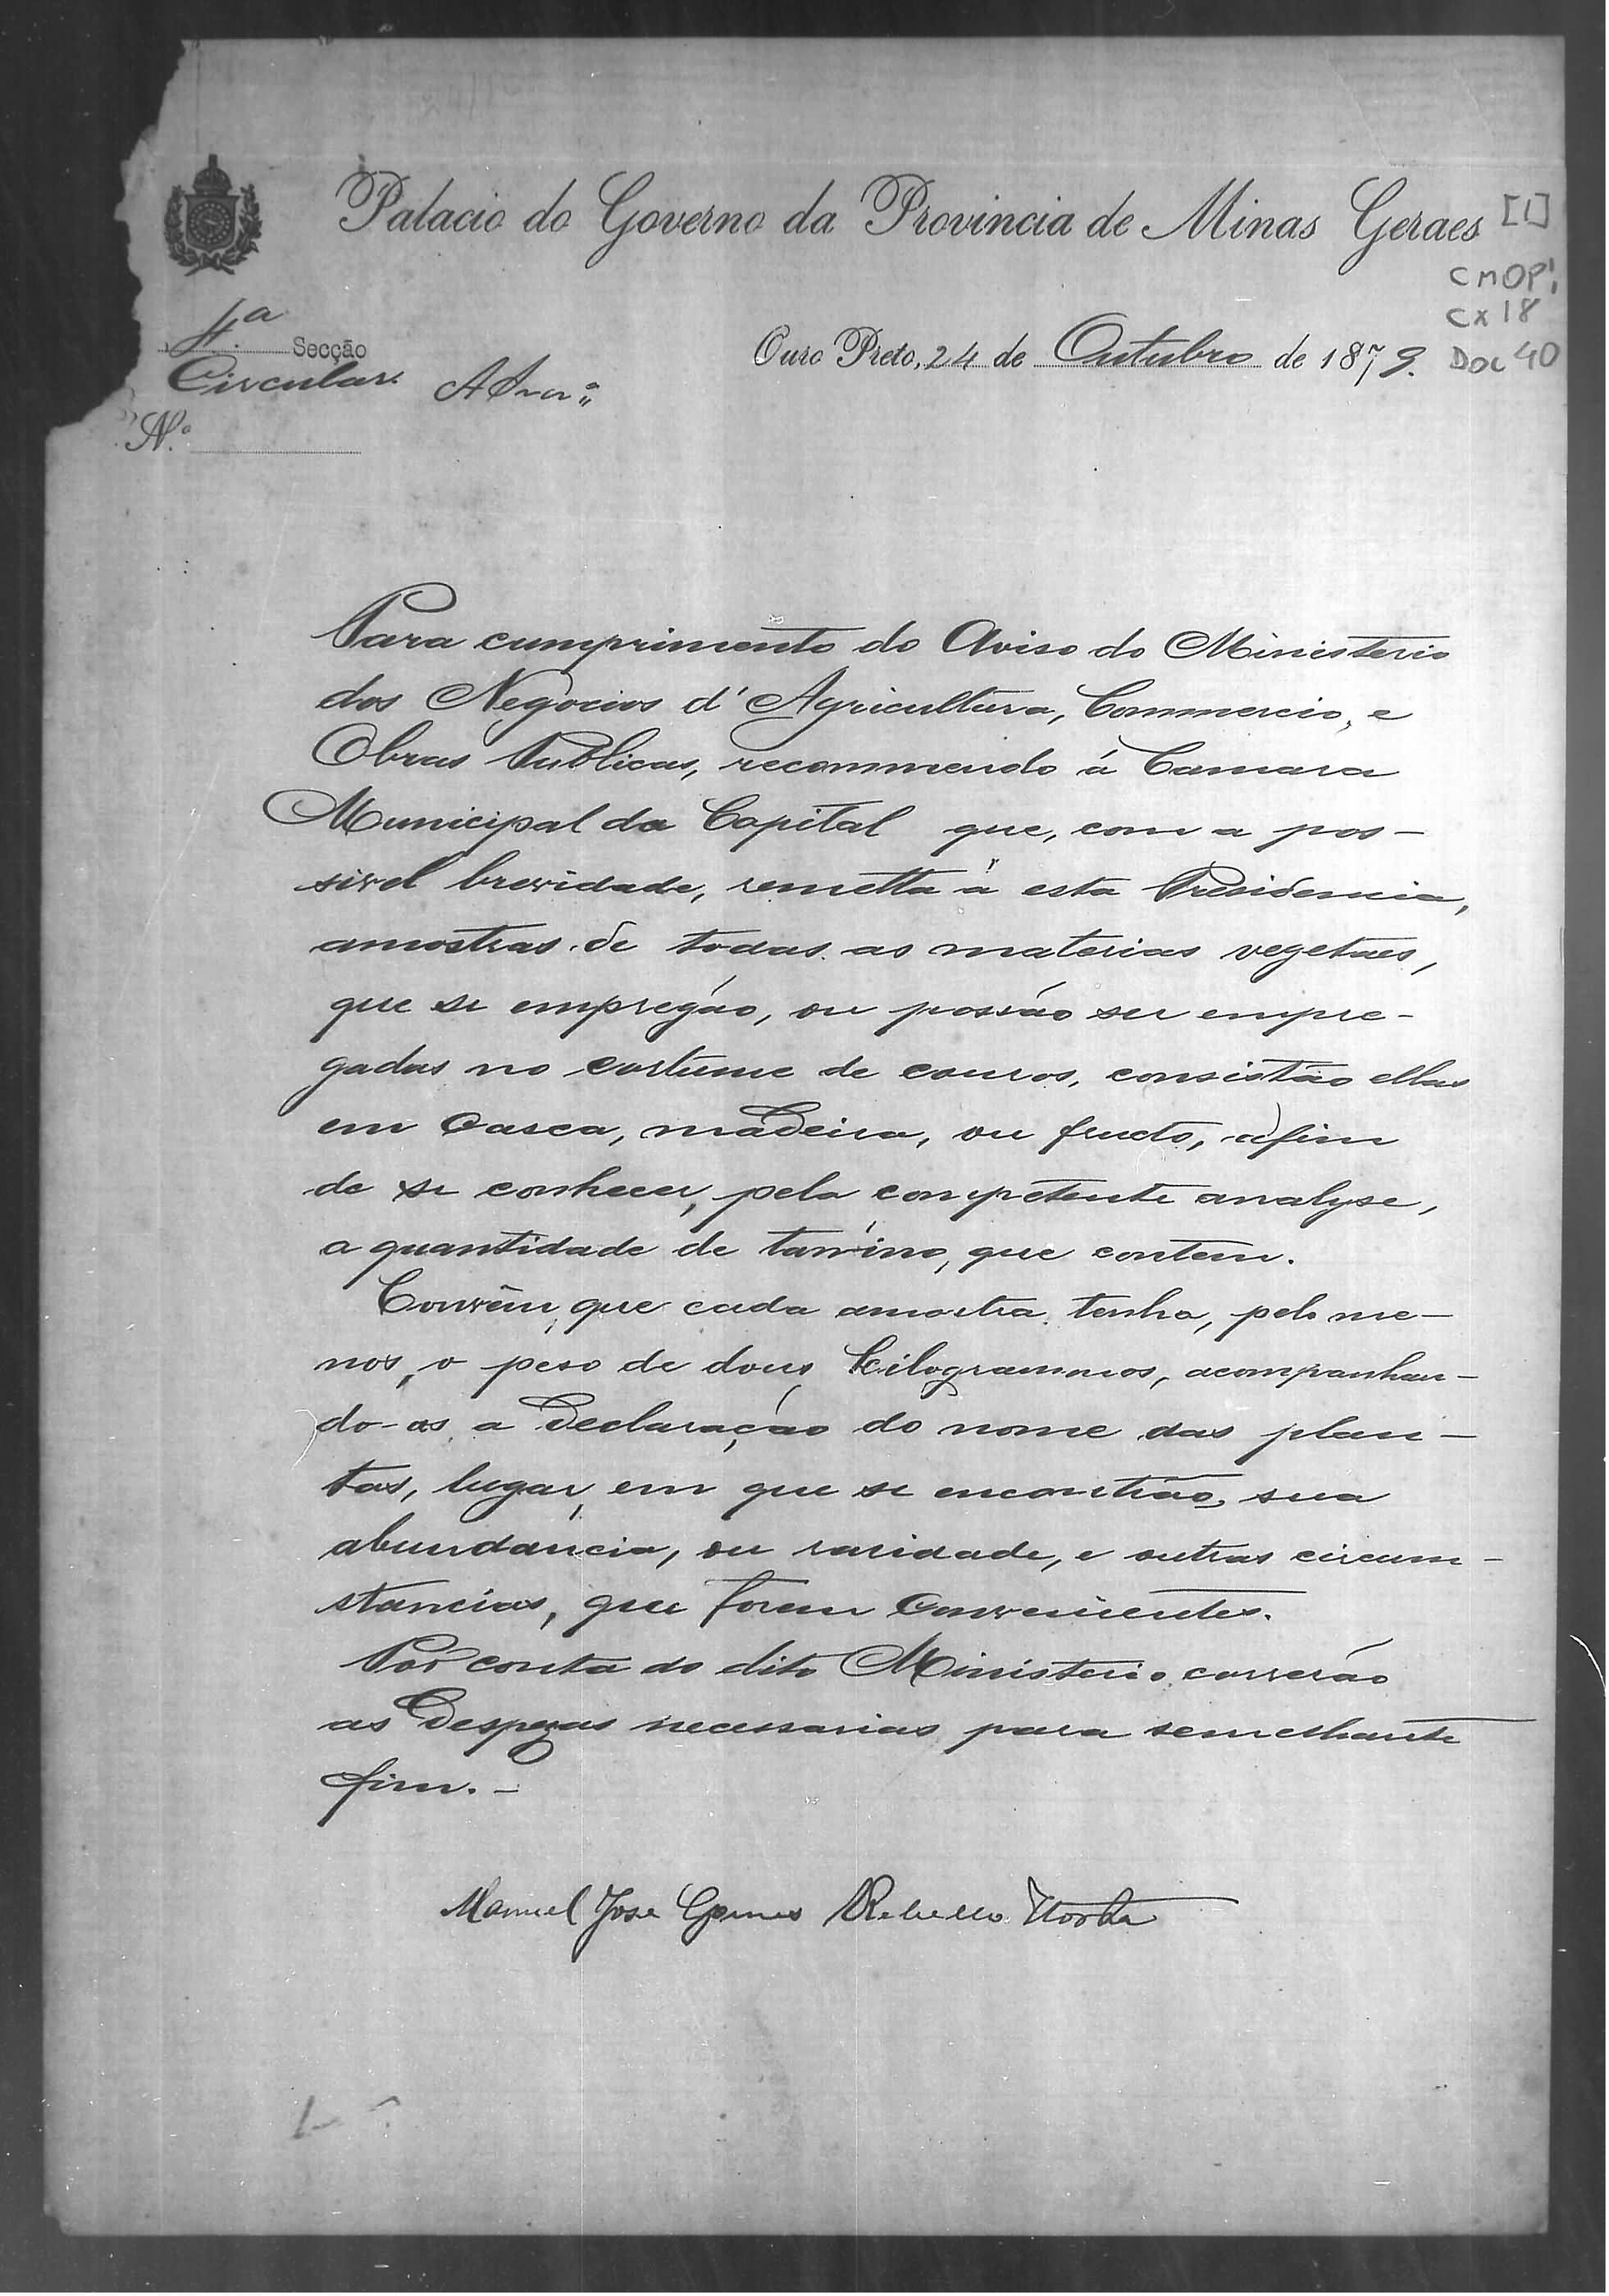 Palacio do Governo da Provincia de Minas Geraes [1]
CMOP
Cx 18
4.ª Secção
Ouro Preto, 24 de Outubro de 1879. Doc 40
Circular.
N.º
Para cumprimento do Aviso do Ministerio
dos Negocios d'Agricultura, Commercio, e
Obras Publicas, recommendo á Camara
Municipal da Capital que, com a pos-
sivel brevidade, remetta á esta Presidencia,
amostras de todas as materias vegetaes,
que se empregão, ou possão ser empre-
gadas no cortume de couros, consistão ellas
em casca, madeira, ou fructo, afim
de se conhecer, pela competente analyse,
a quantidade de tannino, que contem.
Convêm, que cada amostra tenha, pelo me-
nos, o peso de dous kilogrammos, acompanhan-
do-as a declaração do nome das plan-
tas, lugar, em que se encontrão, sua
abundancia, ou raridade, e outras circum-
stancias, que forem convenientes.
Por conta do dito Ministerio correrão
as despezas necessarias para semelhante
fim.-
Manuel José Gomes Rebello Horta